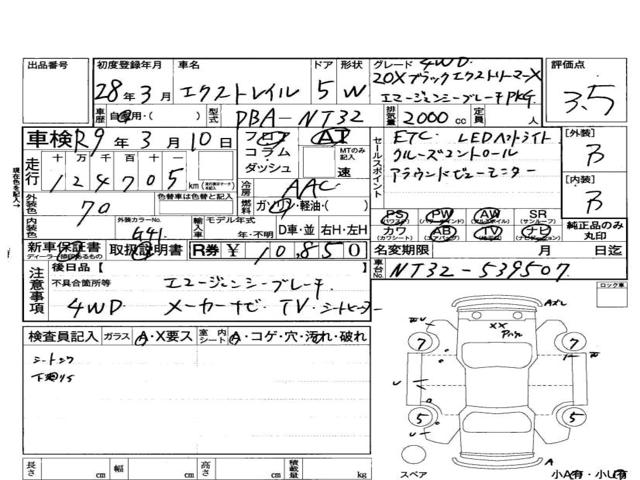 出品番号 初度登録年月 車名 ドア 形状 グレード 4WD 評価点
28年 3月 エクストレイル 5 W 20Xブラックエクストリーマ-X
エマージェンシーブレーキPKG. 3.5
車歴 自家用・( ) 型式 DBA-NT32 排気量 2000 cc 定員 人
車検 R9年 3月 10日 フロア AT
コラム・ダッシュ MTのみ記入 速
走行 十 万 千 百 十 一
124705 km
冷房 AAC
外装色 70 色替車は色替と記入 燃料 ガソリン・軽油・( )
内装色 外装カラーNo. G41 輸入車 モデル年式 年・不明 D車・並 右H・左H
セールスポイント
ETC LEDヘッドライト
クルーズコントロール
アラウンドビューモニター
[外装] B
[内装] B
PS PW AW SR
カワ AB TV ナビ
純正品のみ丸印
新車保証書 取扱説明書 R券 ¥ 10,850 名変期限 月 日迄
ディーラー捺印あるもの
現在色を記入→
車台No. NT32-539507
注意事項
後日品【 】
不具合箇所等 エマージェンシーブレーキ
4WD メーカーナビ TV シートヒーター
ロック車
検査員記入 ガラス A・X要ス 室内シート A・コゲ・穴・汚れ・破れ
下廻りS
A
XX
7 7
5 5
A
スペア 小A有・小U有
長さ cm 幅 cm 高さ cm 積載量 kg